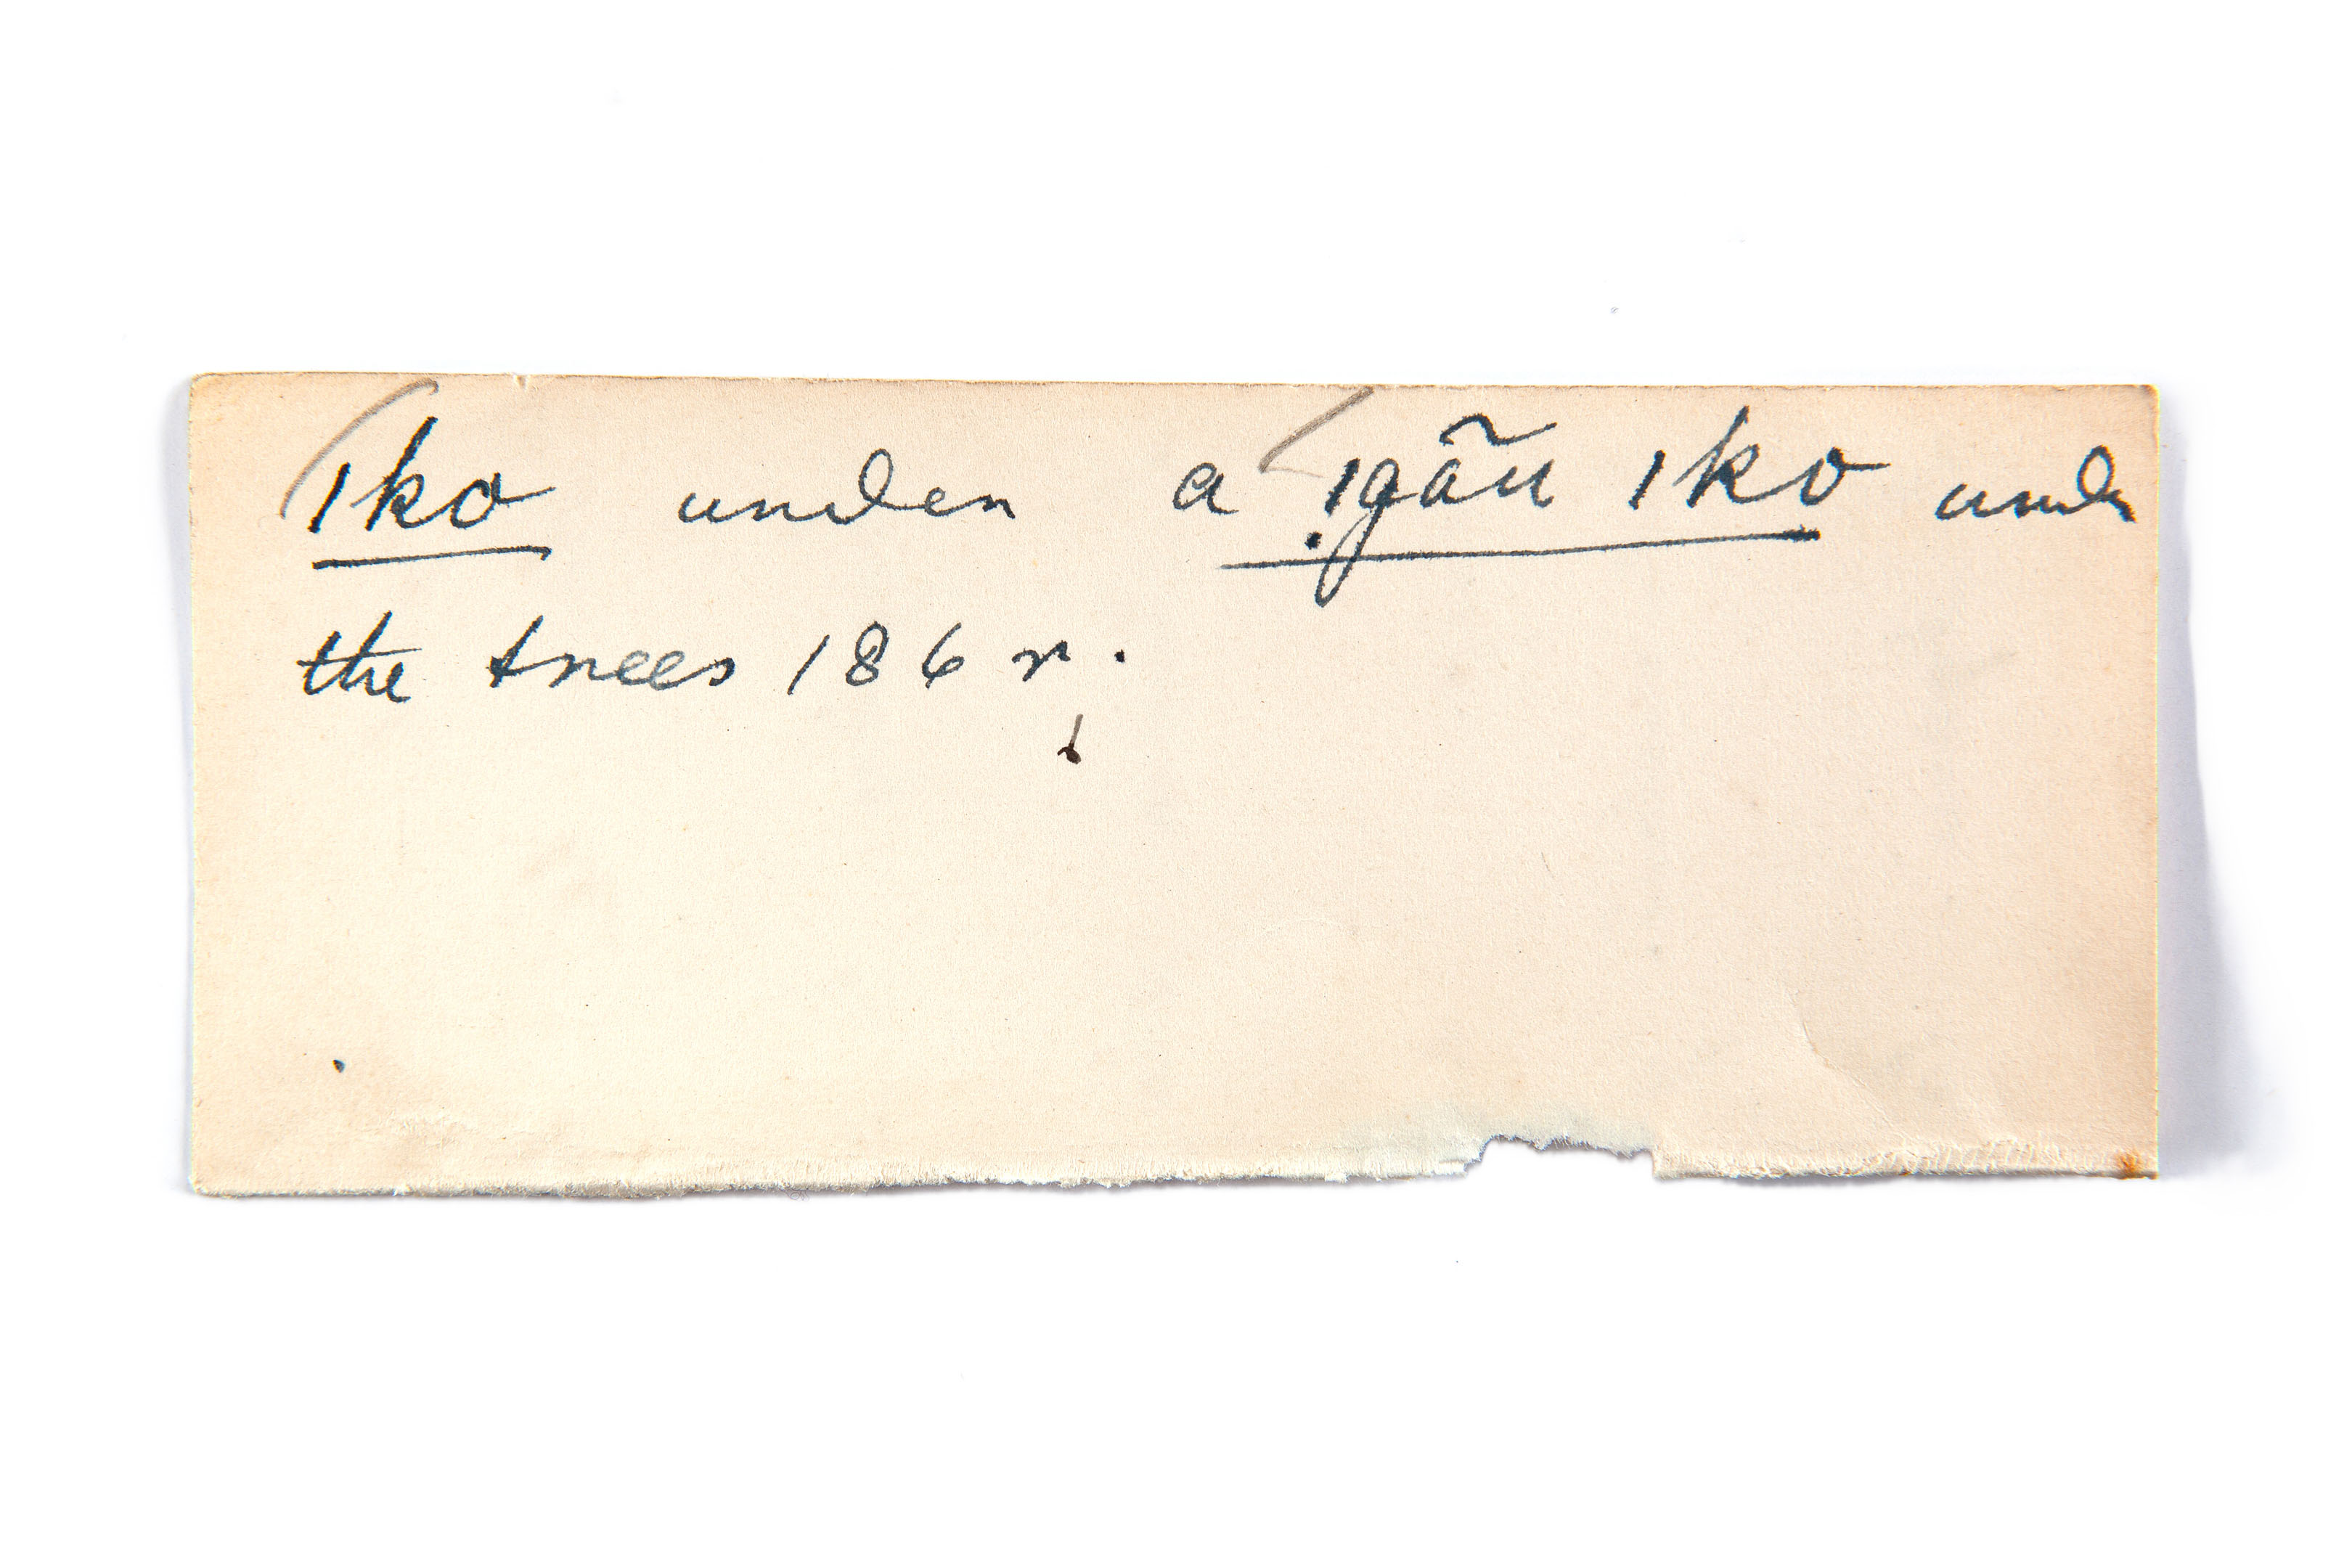 Iko under a Igãu Iko under
the trees 186 r.